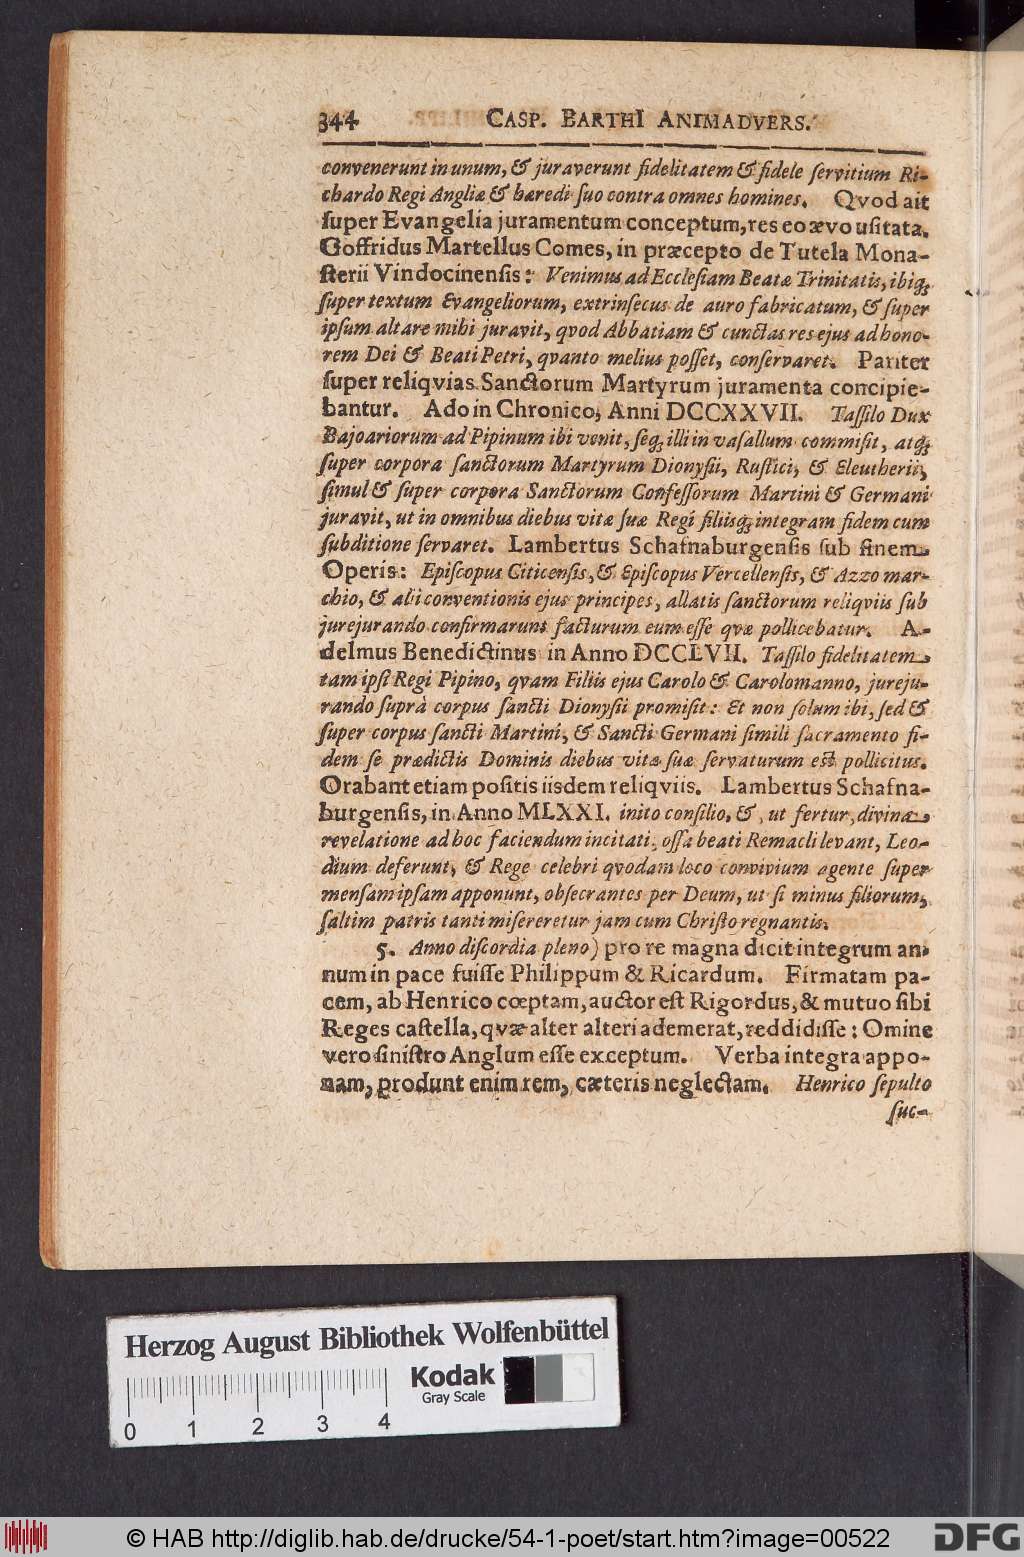 344 CASP. BARTHI ANIMADVERS.
convenerunt in unum, & juraverunt fidelitatem & fidele servitium Ri-
chardo Regi Angliæ & hæredi suo contra omnes homines. Qvod ait
super Evangelia juramentum conceptum, res eo ævo usitata.
Goffridus Martellus Comes, in præcepto de Tutela Mona-
sterii Vindocinensis: Venimus ad Ecclesiam Beatæ Trinitatis, ibiq;
super textum Evangeliorum, extrinsecus de auro fabricatum, & super
ipsum altare mihi juravit, qvod Abbatiam & cunctas res ejus ad hono-
rem Dei & Beati Petri, qvanto melius posset, conservaret. Pariter
super reliqvias Sanctorum Martyrum juramenta concipie-
bantur. Ado in Chronico, Anni DCCXXVII. Tassilo Dux
Bajoariorum ad Pipinum ibi venit, seq; illi in vasallum commisit, atq;
super corpora sanctorum Martyrum Dionysii, Rustici, & Eleutherii,
simul & super corpora Sanctorum Confessorum Martini & Germani
juravit, ut in omnibus diebus vitæ suæ Regi filiisq; integram fidem cum
subditione servaret. Lambertus Schafnaburgensis sub finem
Operis: Episcopus Citicensis, & Episcopus Vercellensis, & Azzo mar-
chio, & alii conventionis ejus principes, allatis sanctorum reliqviis sub
jurejurando confirmarunt facturum eum esse qvæ pollicebatur. A-
delmus Benedictinus in Anno DCCLVII. Tassilo fidelitatem
tam ipsi Regi Pipino, qvam Filiis ejus Carolo & Carolomanno, jureju-
rando suprà corpus sancti Dionysii promisit: Et non solum ibi, sed &
super corpus sancti Martini, & Sancti Germani simili sacramento fi-
dem se prædictis Dominis diebus vitæ suæ servaturum est pollicitus.
Orabant etiam positis iisdem reliqviis. Lambertus Schafna-
burgensis, in Anno MLXXI. inito consilio, &, ut fertur, divina
revelatione ad hoc faciendum incitati, ossa beati Remacli levant, Leo-
dium deferunt, & Rege celebri qvodam loco convivium agente super
mensam ipsam apponunt, obsecrantes per Deum, ut si minus filiorum,
saltim patris tanti misereretur jam cum Christo regnantis.
5. Anno discordia pleno) pro re magna dicit integrum an-
num in pace fuisse Philippum & Ricardum. Firmatam pa-
cem, ab Henrico cœptam, auctor est Rigordus, & mutuo sibi
Reges castella, qvæ alter alteri ademerat, reddidisse: Omine
vero sinistro Anglum esse exceptum. Verba integra appo-
nam, produnt enim rem, cæteris neglectam. Henrico sepulto
suc-
Herzog August Bibliothek Wolfenbüttel
Kodak
Gray Scale
0 1 2 3 4
© HAB http://diglib.hab.de/drucke/54-1-poet/start.htm?image=00522
DFG